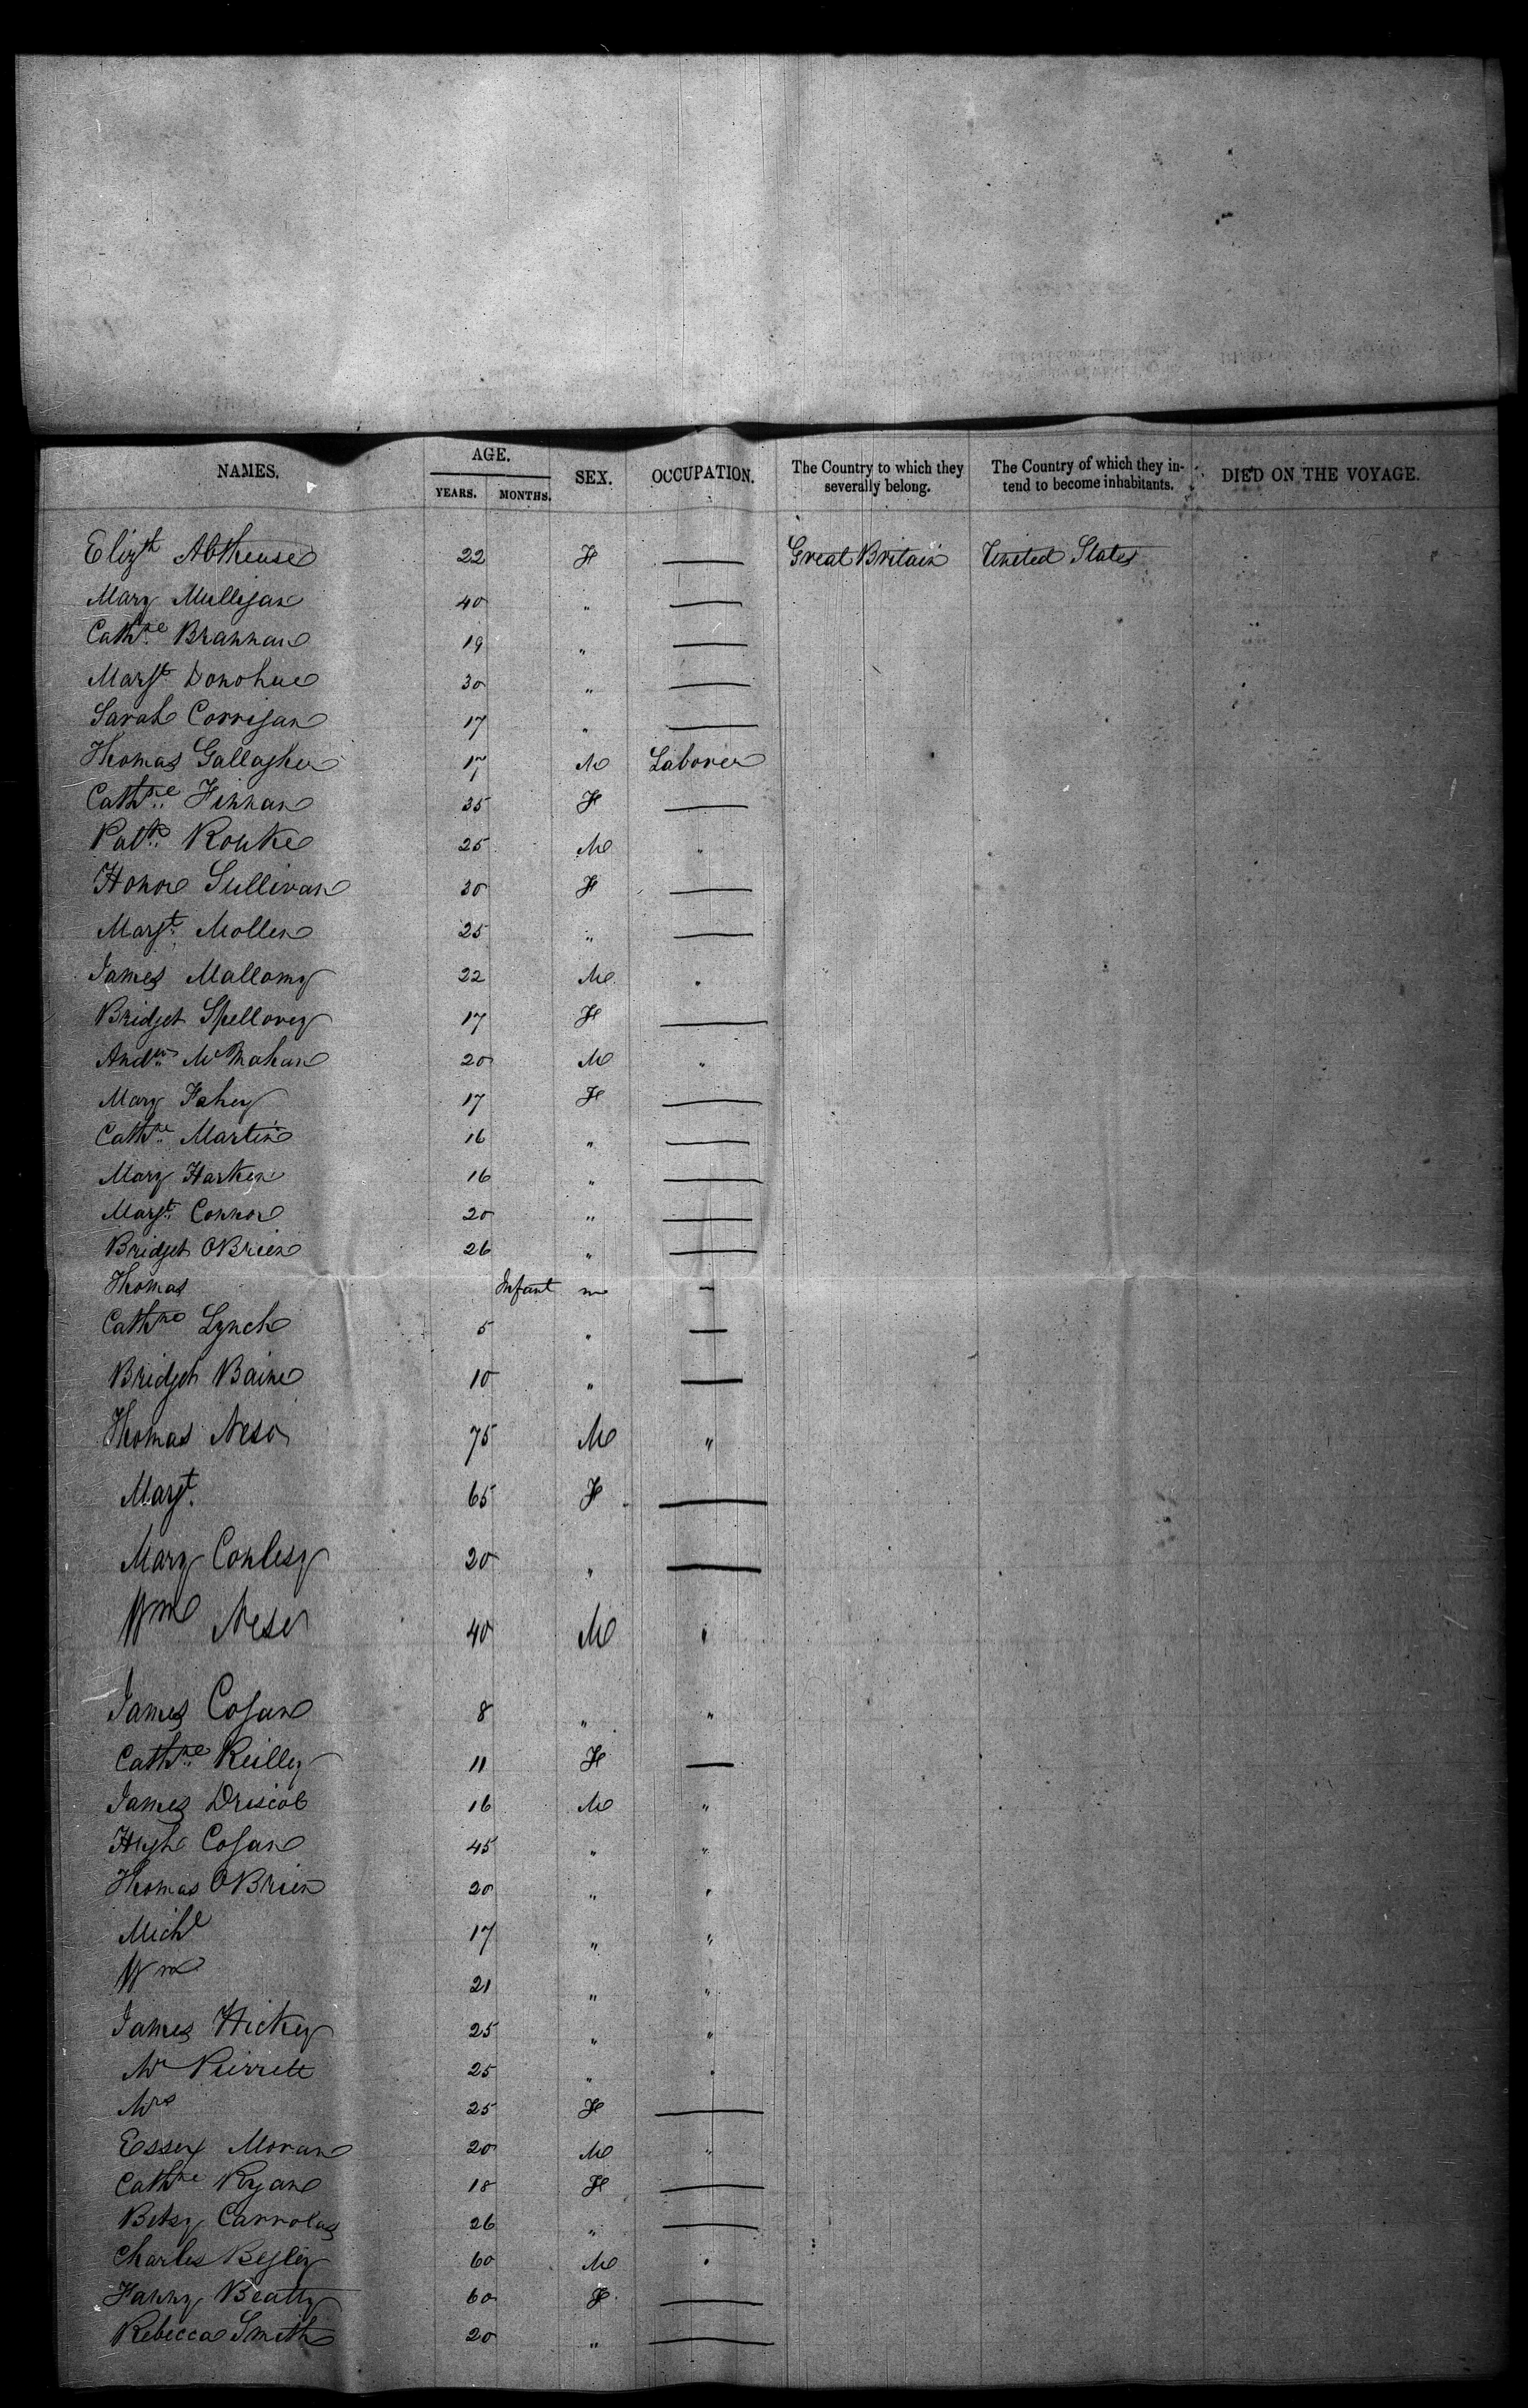 NAMES. AGE. YEARS. MONTHS. SEX. OCCUPATION. The Country to which they severally belong. The Country of which they intend to become inhabitants. DIED ON THE VOYAGE.
Elizth Abtheuse 22 F — Great Britain United States
Mary Mulligan 40 " —
Cathne Brannan 19 " —
Margt Donohue 30 " —
Sarah Corrigan 17 " —
Thomas Gallagher 17 M Laborer
Cathne Finnan 35 F —
Patk Rourke 25 M "
Honor Sullivan 30 F —
Margt Mollen 25 " —
James Mallomy 22 M "
Bridget Spellovey 17 F —
Andw McMahan 20 M "
Mary Fahey 17 F —
Cathne Martin 16 " —
Mary Harken 16 " —
Margt Connor 20 " —
Bridget OBrien 26 " —
Thomas Infant m —
Cathne Lynch 5 " —
Bridget Baine 10 " —
Thomas 75 M "
Margt 65 F —
Mary Conlesy 20 " —
Wm 40 M "
James Cogan 8 " "
Cathne Reilley 11 F —
James Driscol 16 M "
Hugh Cogan 45 " "
Thomas OBrien 20 " "
Michl 17 " "
Wm 21 " "
James Hickey 25 " "
Mr Pierrett 25 " "
Mrs 25 F —
Essex Moran 20 M "
Cathne Ryan 18 F —
Betsy Carrolas 26 " —
Charles Begley 60 M "
Fanny Beatty 60 F —
Rebecca Smith 20 " —